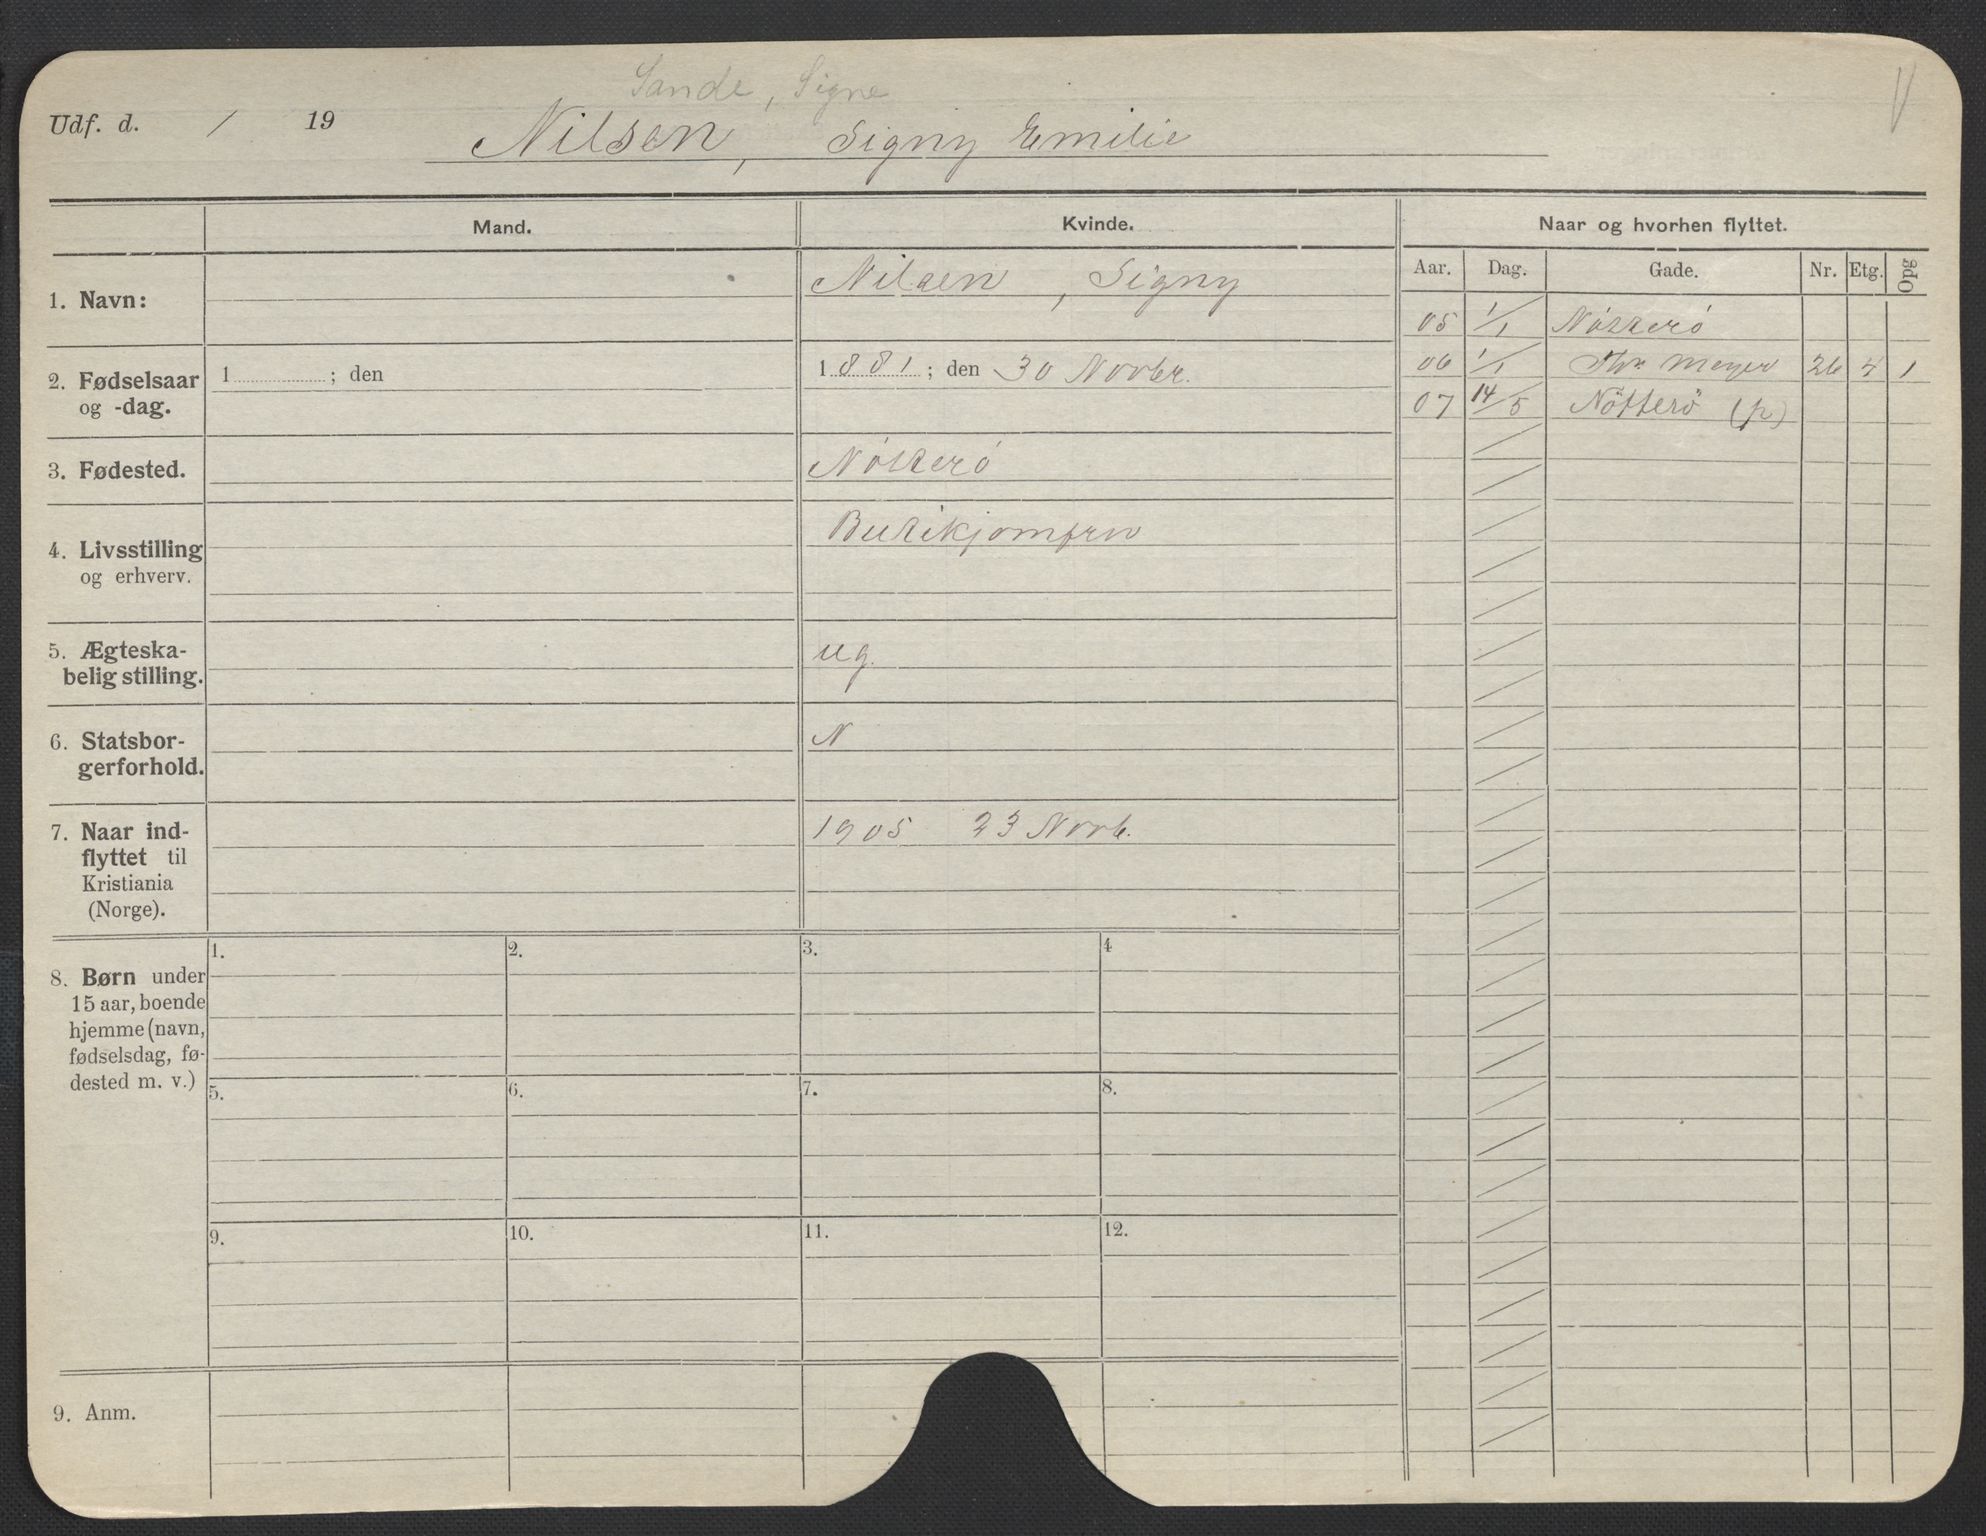 Sande, Signe
Udf. d. / 19 Nilsen, Signy Emilie
Mand. Kvinde. Naar og hvorhen flyttet.
Aar. Dag. Gade. Nr. Etg. Opg
1. Navn: Nilsen, Signy
05 1/1 Nötterö
06 1/1 Thv. Meyer 26 4 1
07 14/5 Nötterö (p)
2. Fødselsaar og -dag. 1 ; den 1881 ; den 30 Novbr.
3. Fødested. Nötterö
4. Livsstilling og erhverv. Butikjomfru
5. Ægteska-
belig stilling. ug.
6. Statsbor-
gerforhold. N
7. Naar ind-
flyttet til
Kristiania
(Norge). 1905 23 Novb.
8. Børn under
15 aar, boende
hjemme (navn,
fødselsdag, fø-
dested m. v.)
1. 2. 3. 4
5. 6. 7. 8.
9. 10. 11. 12.
9. Anm.